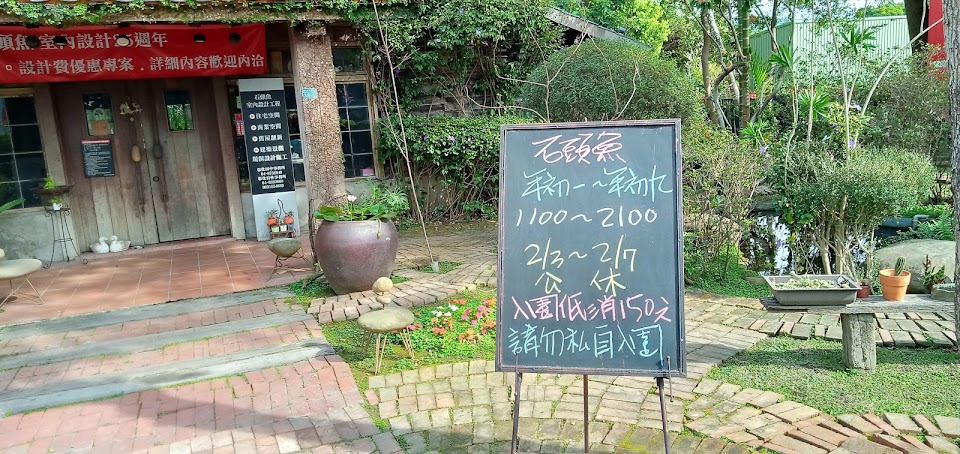 頭魚 室內設計 週年
。設計費優惠專案﹒詳細內容歡迎內洽
石頭魚
室內設計工程
住宅空間
商業空間
舊屋翻新
建築景觀
石頭魚
年初一～年初九
1100～2100
2/3～2/7
公休
入園低消150元
請勿私自入園